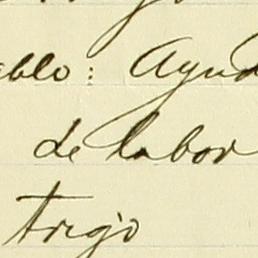 ablo: Ayud
de labor
trigo